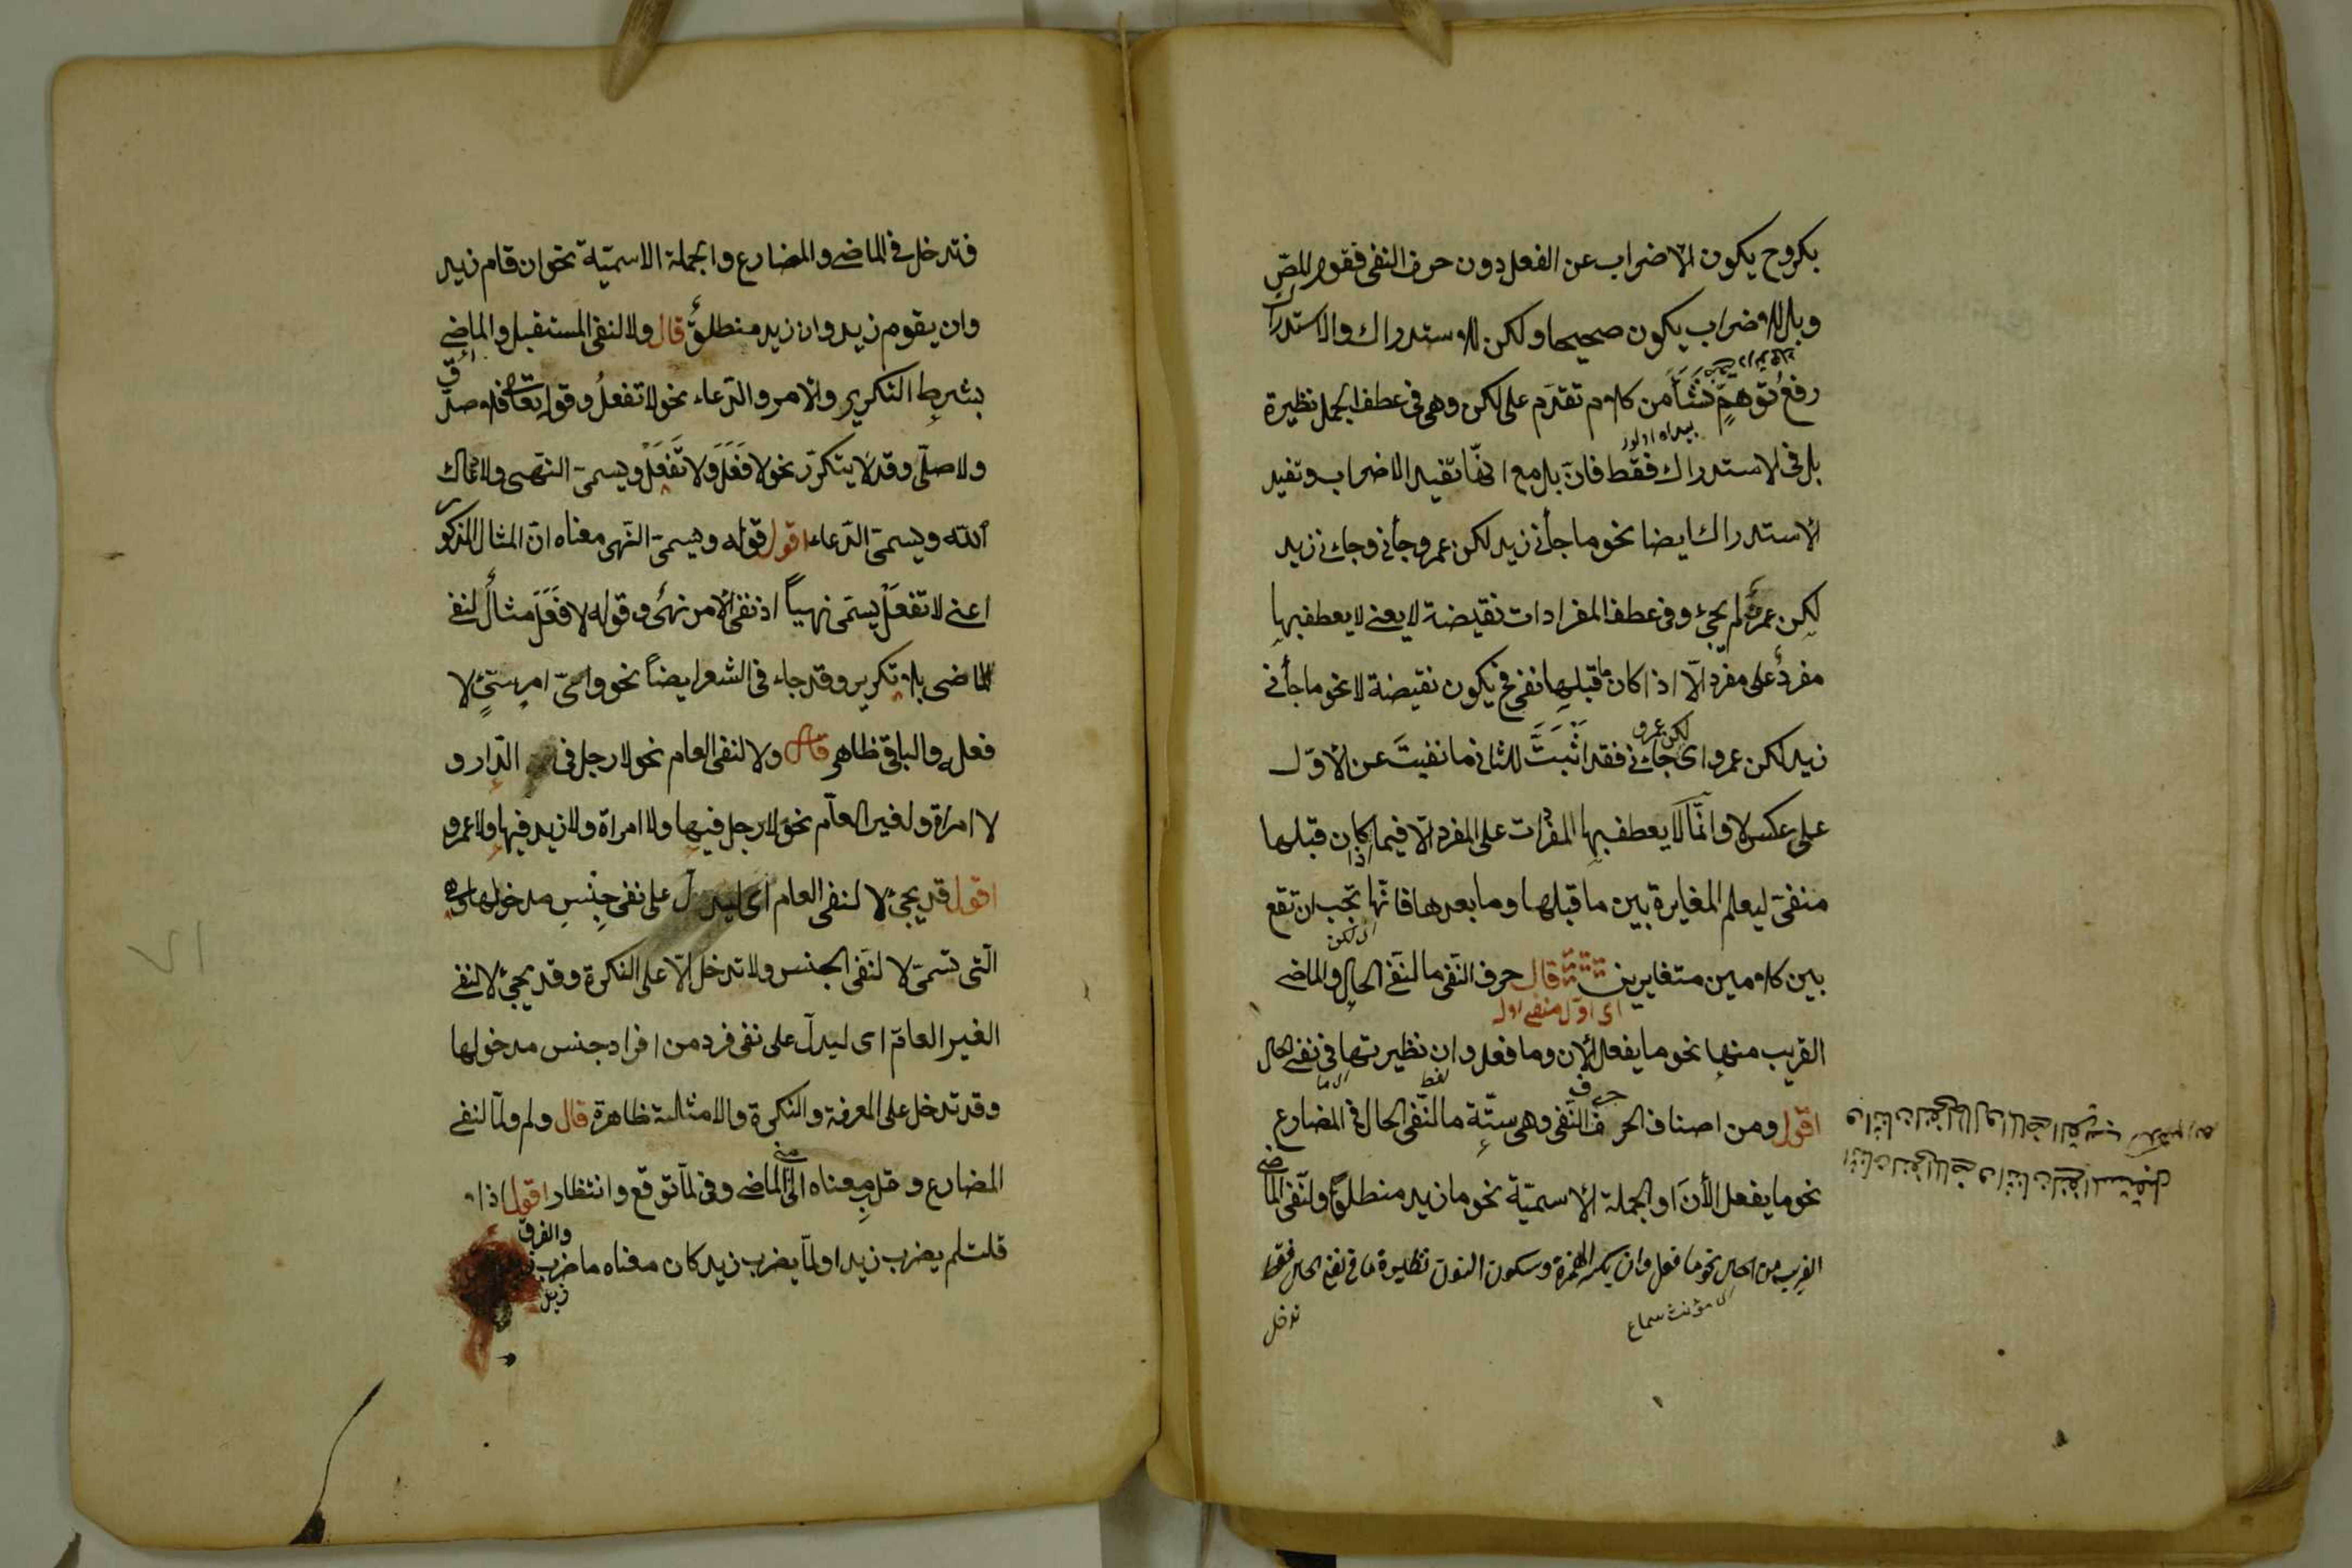 بكر وح يكون الاضراب عن الفعل دون حرف النفى فقول المص
وبل للاضراب يكون صحيحا ولكن للاستدراك والاستدراك
رفع توهم نشأ من كلام تقدم على لكن وهى فى عطف الجمل نظيرة
بل فى الاستدراك فقط فان بل مع انها تفيد الاضراب وتفيد
الاستدراك ايضا نحو ما جأنى زيد لكن عمرو جأنى وجاءنى زيد
لكن عمرو لم يجئ وفى عطف المفرادات نقيضة لا يعنى لا يعطف بها
مفرد على مفرد الا اذا كان ما قبلها نفى فح يكون نقيضة لا نحو ما جأنى
زيد لكن عمرو اى لكن عمرو جاءنى فقد اثبت للثانى ما نفيت عن الاول
على عكس لا وانما لا يعطف بها المفردات على المفرد الا فيما اذا كان قبلها
منفى ليعلم المغايرة بين ما قبلها وما بعدها فانها يجب ان تقع
اى لكن
بين كلامين متغايرين قال حرف النفى ما لنفى الحال والماضى
اى اول منفى اوله
القريب منها نحو ما يفعل الان وما فعل وان نظيرتها فى نفى الحال
اقول ومن اصناف الحرف حرف النفى وهى ستة ما لنفى الحال فى المضارع
نحو ما يفعل الأن او الجملة الاسمية نحو ما زيد منطلق ولنفى الماضى
القريب من الحال نحو ما فعل وان بكسر الهمزة وسكون النون نظيرة ما فى نفى الحال فقط
اى مؤنث سماع
تدخل
فتدخل فى الماضى والمضارع والجملة الاسمية نحو ان قام زيد
وان يقوم زيد وان زيد منطلق قال ولا لنفى المستقبل والماضى
بشرط التكرير والامر والدعاء نحو لا تفعل وقوله تعالى فلا صدق
ولا صلى وقد لا يتكرر نحو لا فعل ولا تفعل ويسمى النهى ولا رعاك
الله ويسمى الدعاء اقول قوله ويسمى النهى معناه ان المثال المذكور
اعنى لا تفعل يسمى نهياً اذ نفى الامر نهى وقوله لا فعل مثال لنفى
الماضى بلا تكرير وقد جاء فى الشعر ايضاً نحو واى امر سىئ لا
فعله والباقى ظاهر قال ولا لنفى العام نحو لا رجل فى الدار و
لا امراة ولغير العام نحو لا رجل فيها ولا امراة ولا زيد فيها ولا عمرو
اقول قد يجئ لا لنفى العام اى ليدل على نفى جنس مدخولها وهى
التى تسمى لا لنفى الجنس ولا تدخل الا على النكرة وقد يجئ لا لنفى
الغير العام اى ليدل على نفى فرد من افراد جنس مدخولها
وقد تدخل على المعرفة والنكرة والامثلة ظاهرة قال ولم ولما لنفى
المضارع وقلب معناه الى الماضى وفى لما توقع وانتظار اقول اذا
قلت لم يضرب زيد او لما يضرب زيد كان معناه ما ضرب زيد
والفرق